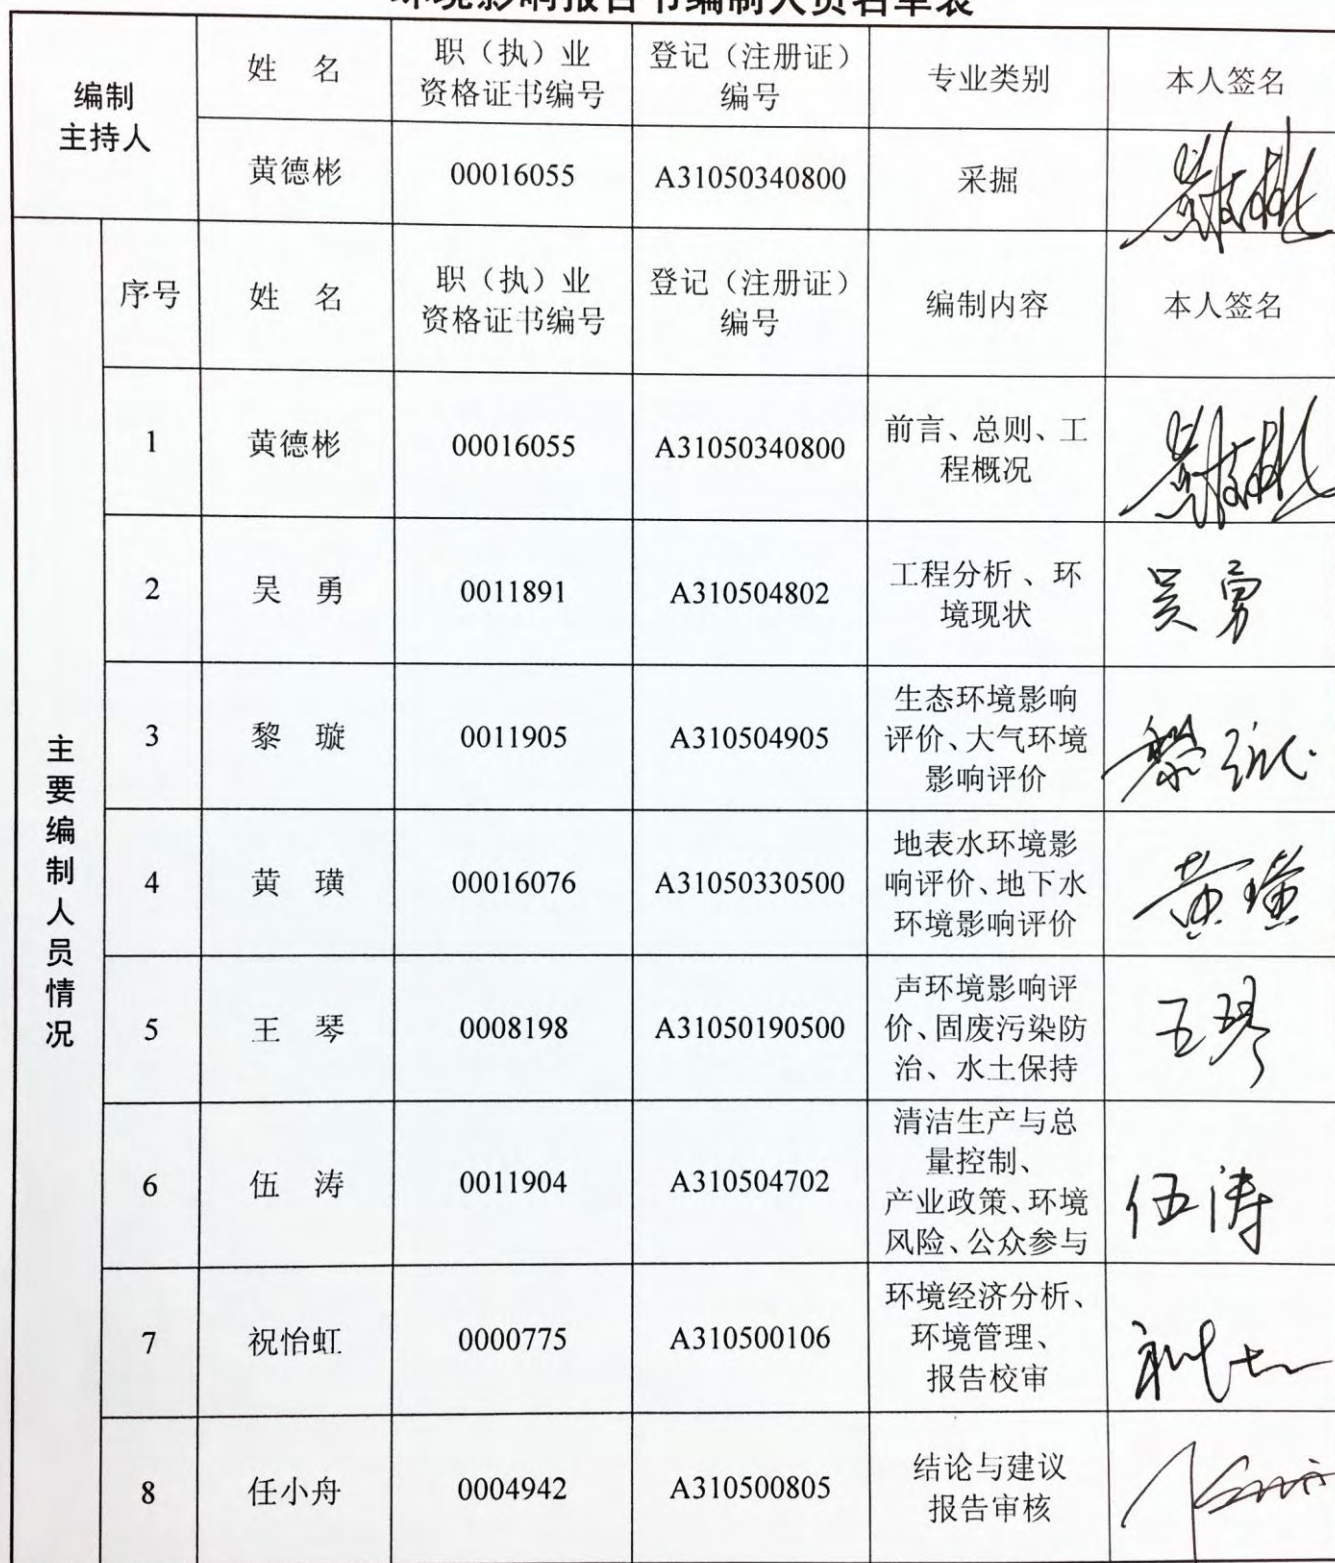 环境影响报告书编制人员名单表
编制
主持人
姓 名
职（执）业
资格证书编号
登记（注册证）
编号
专业类别
本人签名
黄德彬
00016055
A31050340800
采掘
黄德彬
主要编制人员情况
序号
姓 名
职（执）业
资格证书编号
登记（注册证）
编号
编制内容
本人签名
1
黄德彬
00016055
A31050340800
前言、总则、工
程概况
黄德彬
2
吴 勇
0011891
A310504802
工程分析 、环
境现状
吴勇
3
黎 璇
0011905
A310504905
生态环境影响
评价、大气环境
影响评价
黎璇
4
黄 璜
00016076
A31050330500
地表水环境影
响评价、地下水
环境影响评价
黄璜
5
王 琴
0008198
A31050190500
声环境影响评
价、固废污染防
治、水土保持
王琴
6
伍 涛
0011904
A310504702
清洁生产与总
量控制、
产业政策、环境
风险、公众参与
伍涛
7
祝怡虹
0000775
A310500106
环境经济分析、
环境管理、
报告校审
8
任小舟
0004942
A310500805
结论与建议
报告审核